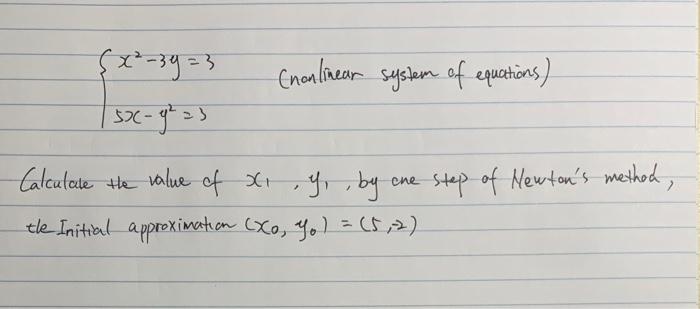 x² - 3y = 3
(nonlinear system of equations)
5x - y² = 3
Calculate the value of x₁, y₁, by one step of Newton's method,
the Initial approximation (x₀, y₀) = (5, -2)